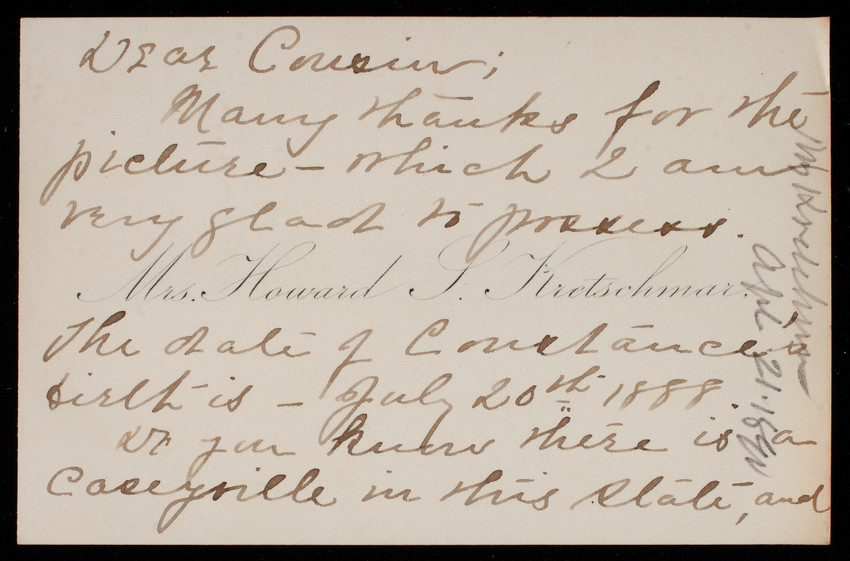 Dear Cousin;
Many thanks for the
picture – which I am
very glad to possess.
Mrs. Howard S. Kretschmar.
The date of Constance's
birth is – July 20th 1888
Do you know there is a
Caseyville in this state, and
Mrs Kretchmar
Apl 21-18